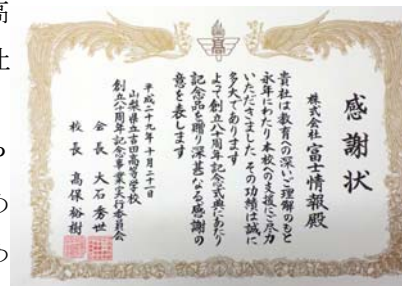 感謝状
株式会社 富士情報殿
貴社は教育への深いご理解のもと
永年にわたり本校への支援にご尽力
いただきました その功績は誠に
多大であります
よって創立八十周年記念式典にあたり
記念品を贈り深甚なる感謝の
意を表します
平成二十九年十月二十一日
山梨県立吉田高等学校
創立八十周年記念事業実行委員会
会長 大石秀世
校長 髙保裕樹